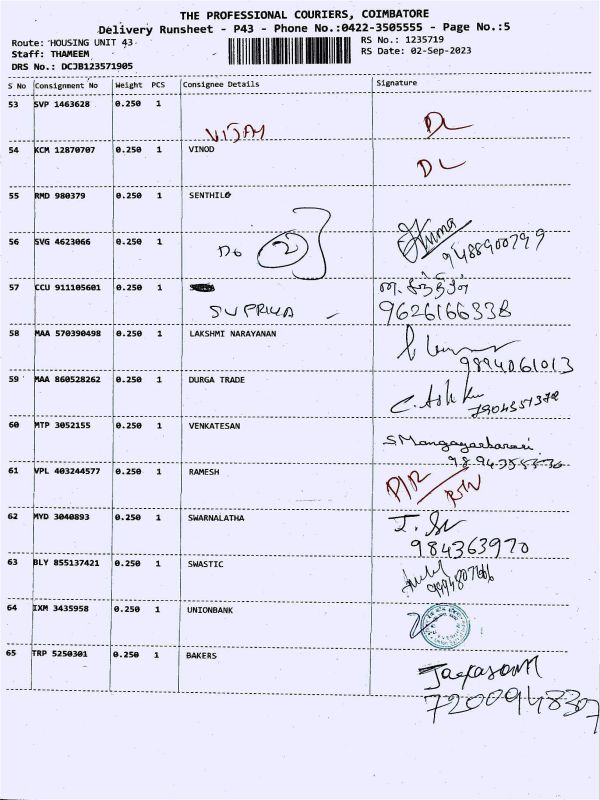 THE PROFESSIONAL COURIERS, COIMBATORE
Delivery Runsheet - P43 - Phone No.:0422-3505555 - Page No.:5
Route: HOUSING UNIT 43
RS No.: 1235719
Staff: THAMEEM
RS Date: 02-Sep-2023
DRS No.: DCJB123571905
S No Consignment No Weight PCS Consignee Details Signature
53 SVP 1463628 0.250 1
VIJAY DL
54 KCM 12870707 0.250 1 VINOD DL
55 RMD 980379 0.250 1 SENTHIL
56 SVG 4623066 0.250 1 Do 2 9488900799
57 CCU 911105601 0.250 1
SUPRIYA 9626166338
58 MAA 570390498 0.250 1 LAKSHMI NARAYANAN
9894061013
59 MAA 860528262 0.250 1 DURGA TRADE C. Ashk
60 MTP 3052155 0.250 1 VENKATESAN
61 VPL 403244577 0.250 1 RAMESH RTN
62 MYD 3040893 0.250 1 SWARNALATHA
984363970
63 BLY 855137421 0.250 1 SWASTIC
64 IXM 3435958 0.250 1 UNIONBANK
65 TRP 5250301 0.250 1 BAKERS
7200948307